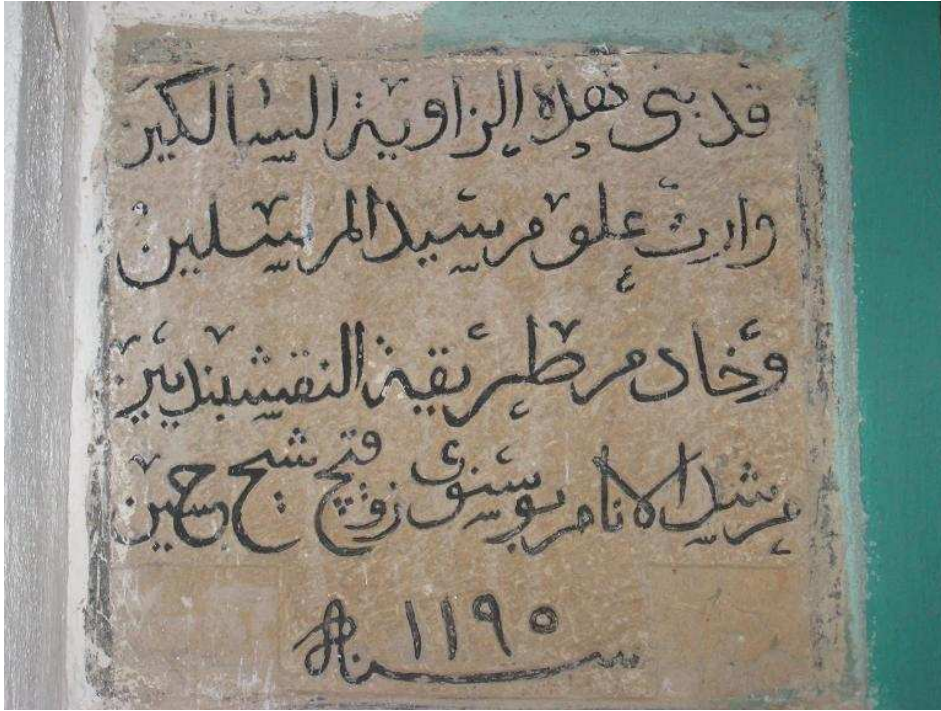 قد بنى هذه الزاوية السالكين
وارث علوم سيد المرسلين
وخادم طريقة النقشبنديين
مرشد الانام بوسنوى زوقچ شيخ حسين
سنة ١١٩٥